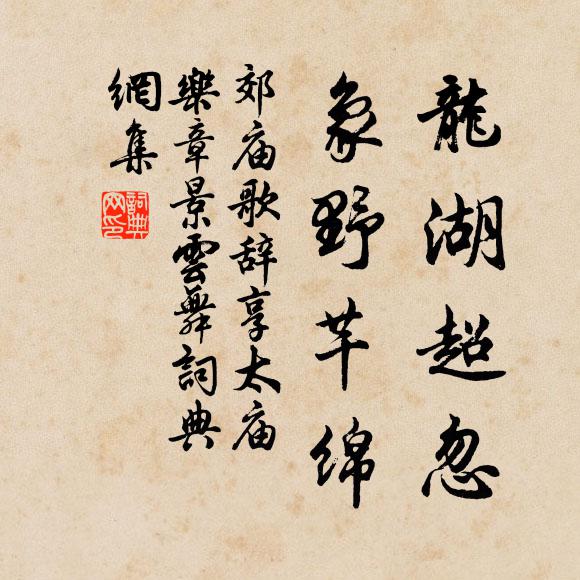 龍湖超忽
象野芊绵
郊庙歌辞享太庙
樂章景雲舞詞典
網集
詞典網印